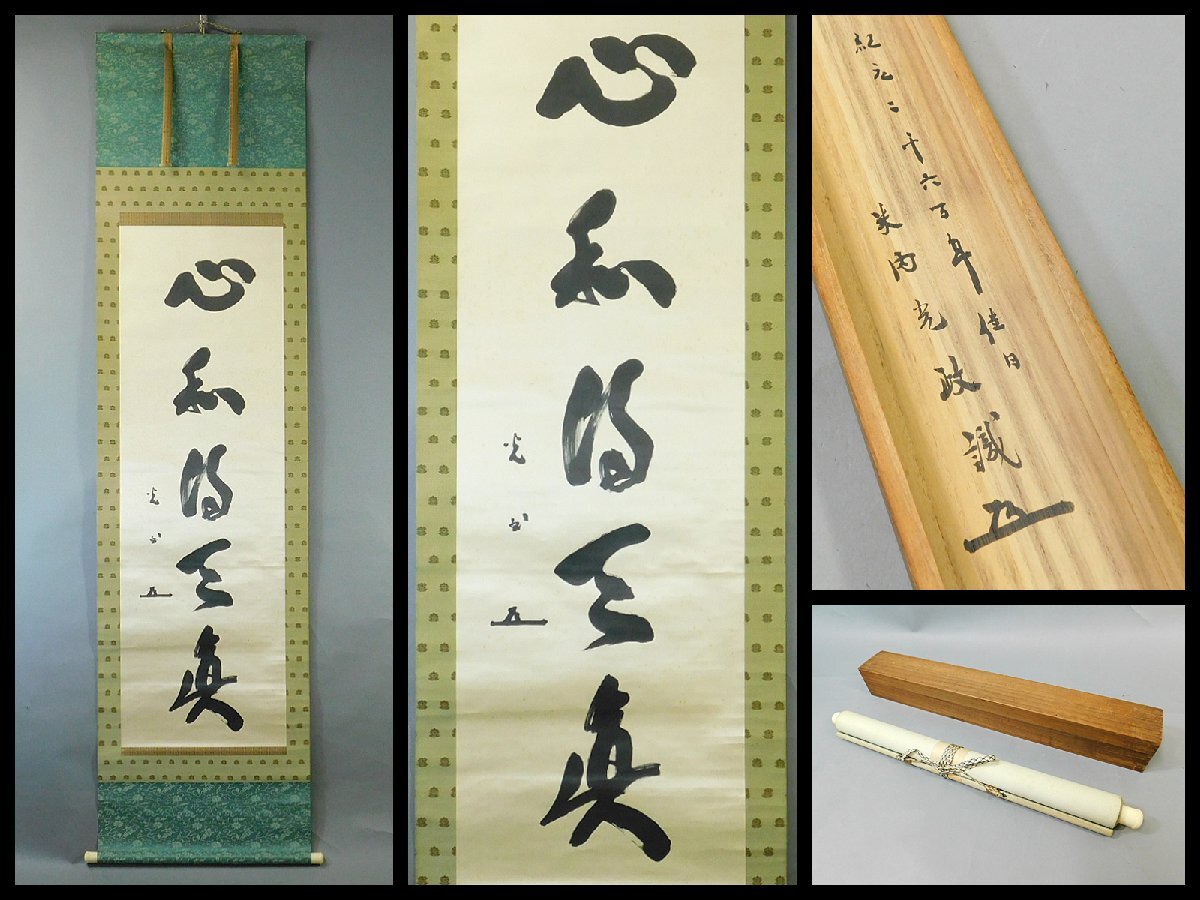 心和得天真
光書
心和得天真
光書
紀元二千六百年佳日
米内光政識